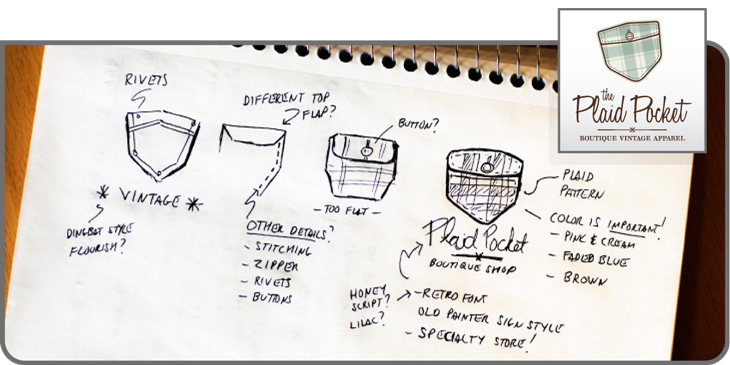 the
Plaid Pocket
BOUTIQUE VINTAGE APPAREL
RIVETS
DIFFERENT TOP
FLAP?
BUTTON?
* VINTAGE *
DINGBAT STYLE
FLOURISH?
OTHER DETAILS?
- STITCHING
- ZIPPER
- RIVETS
- BUTTONS
- TOO FLAT -
PLAID
PATTERN
COLOR IS IMPORTANT!
- PINK & CREAM
- FADED BLUE
- BROWN
Plaid Pocket
BOUTIQUE SHOP
HONEY
SCRIPT?
LILAC?
- RETRO FONT
OLD PAINTER SIGN STYLE
- SPECIALTY STORE!